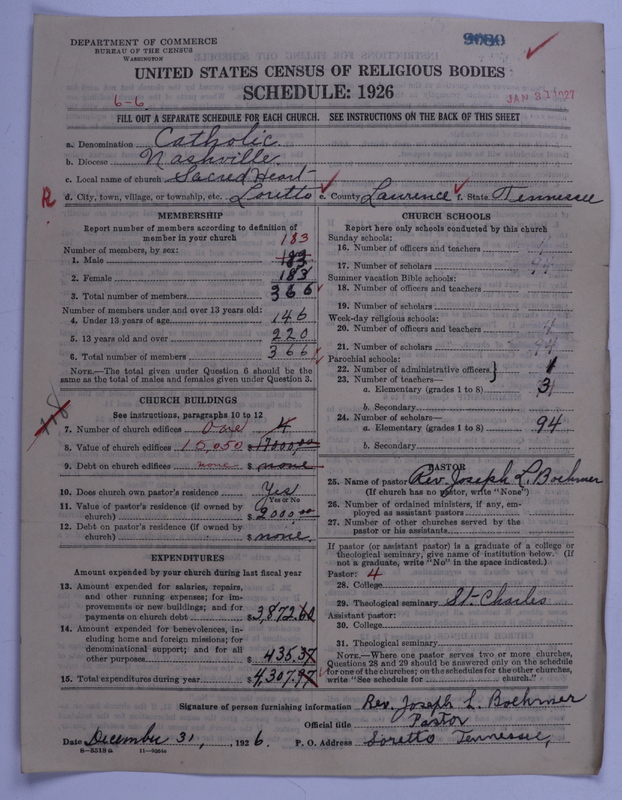 DEPARTMENT OF COMMERCE
BUREAU OF THE CENSUS
WASHINGTON
UNITED STATES CENSUS OF RELIGIOUS BODIES
SCHEDULE: 1926
6-6
JAN 31 1927
FILL OUT A SEPARATE SCHEDULE FOR EACH CHURCH. SEE INSTRUCTIONS ON THE BACK OF THIS SHEET
a. Denomination Catholic
b. Diocese Nashville
c. Local name of church Sacred Heart
R d. City, town, village, or township, etc. Loretto e. County Lawrence f. State Tennessee
MEMBERSHIP
Report number of members according to definition of
member in your church
183
Number of members, by sex:
1. Male 183
2. Female 183
3. Total number of members 366
Number of members under and over 13 years old:
4. Under 13 years of age 146
5. 13 years old and over 220
6. Total number of members 366
NOTE.—The total given under Question 6 should be
same as the total of males and females given under Question 3.
CHURCH BUILDINGS
See instructions, paragraphs 10 to 12
7. Number of church edifices One 4
8. Value of church edifices 15,050 $17000.00
9. Debt on church edifices none $ none
10. Does church own pastor's residence Yes
Yes or No
11. Value of pastor's residence (if owned by
church) $2000.00
12. Debt on pastor's residence (if owned by
church) $ none.
EXPENDITURES
Amount expended by your church during last fiscal year
13. Amount expended for salaries, repairs,
and other running expenses; for im-
provements or new buildings; and for
payments on church debt $3,872.60
14. Amount expended for benevolences, in-
cluding home and foreign missions; for
denominational support; and for all
other purposes $ 435.37
15. Total expenditures during year $4,307.97
CHURCH SCHOOLS
Report here only schools conducted by this church
Sunday schools:
16. Number of officers and teachers
17. Number of scholars
Summer vacation Bible schools:
18. Number of officers and teachers
19. Number of scholars
Week-day religious schools:
20. Number of officers and teachers 4
21. Number of scholars 94
Parochial schools:
22. Number of administrative officers 1
23. Number of teachers—
a. Elementary (grades 1 to 8) 3
b. Secondary
24. Number of scholars—
a. Elementary (grades 1 to 8) 94
b. Secondary
PASTOR
25. Name of pastor Rev. Joseph L. Boehmer
(If church has no pastor, write "None")
26. Number of ordained ministers, if any, em-
ployed as assistant pastors
27. Number of other churches served by the
pastor or his assistants
If pastor (or assistant pastor) is a graduate of a college or
theological seminary, give name of institution below. (If
not a graduate, write "No" in the space indicated.)
Pastor: 4
28. College
29. Theological seminary St. Charles
Assistant pastor:
30. College
31. Theological seminary
NOTE.—Where one pastor serves two or more churches,
Questions 28 and 29 should be answered only on the schedule
for one of the churches; on the schedules for the other churches,
write "See schedule for church."
Signature of person furnishing information Rev. Joseph L. Boehmer
Official title Pastor
Date December 31, 1926. P. O. Address Loretto Tennessee,
8-5318a 11-9554a